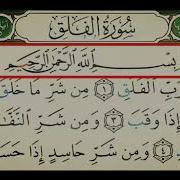 سُورَةُ الفَلَقِ
بِسْمِ اللَّهِ الرَّحْمَٰنِ الرَّحِيمِ
رَبِّ الْفَلَقِ ١ مِن شَرِّ مَا خَلَقَ
إِذَا وَقَبَ ٣ وَمِن شَرِّ
٤ وَمِن شَرِّ حَاسِدٍ إِذَا